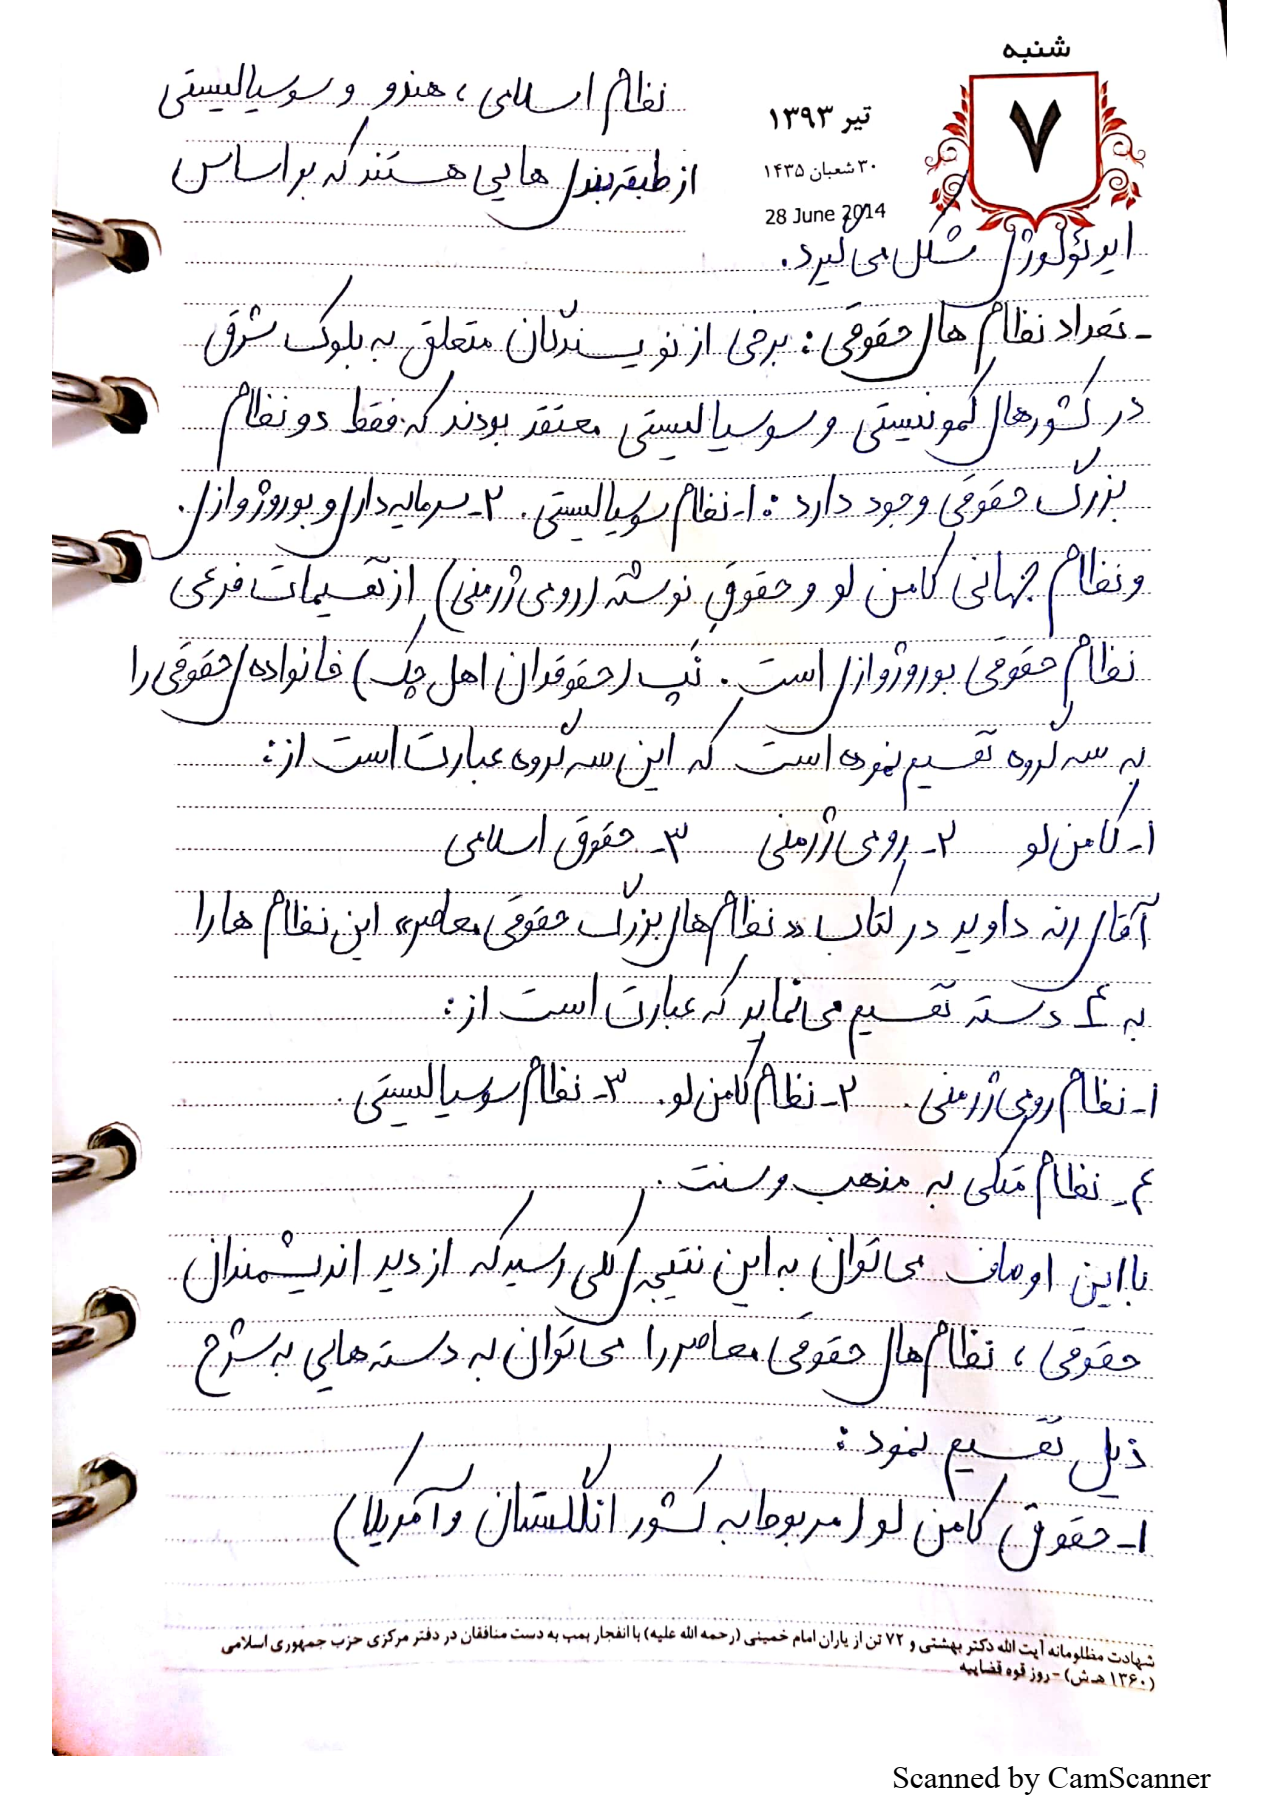 شنبه
۷
تیر ۱۳۹۳
۳۰ شعبان ۱۴۳۵
28 June 2014
نظام اسلامی ، هندو و سوسیالیستی
از طبقه بندی هایی هستند که بر اساس
ایدئولوژی شکل می گیرد.
ـ تعداد نظام های حقوقی : برخی از نویسندگان متعلق به بلوک شرق
در کشورهای کمونیستی و سوسیالیستی معتقد بودند که فقط دو نظام
بزرگ حقوقی وجود دارد : ۱ـ نظام سوسیالیستی. ۲ـ سرمایه داری و بوروژوازی.
و نظام جهانی کامن لو و حقوق نوشته (رومی ژرمنی) از تقسیمات فرعی
نظام حقوقی بوروژوازی است. نپ (حقوقدان اهل چک) خانواده ی حقوقی را
به سه گروه تقسیم نموده است که این سه گروه عبارت است از :
۱ـ کامن لو ۲ـ رومی ژرمنی ۳ـ حقوق اسلامی
آقای رنه داوید در کتاب «نظام های بزرگ حقوقی معاصر» این نظام ها را
به ۴ دسته تقسیم می نماید که عبارت است از :
۱ـ نظام رومی ژرمنی. ۲ـ نظام کامن لو. ۳ـ نظام سوسیالیستی.
۴ـ نظام متکی به مذهب و سنت.
با این اوصاف می توان به این نتیجه ی کلی رسید که از دید اندیشمندان
حقوقی ، نظام های حقوقی معاصر را می توان به دسته هایی به شرح
ذیل تقسیم نمود :
۱ـ حقوق کامن لو (مربوط به کشور انگلستان و آمریکا)
شهادت مظلومانه آیت الله دکتر بهشتی و ۷۲ تن از یاران امام خمینی (رحمه الله علیه) با انفجار بمب به دست منافقان در دفتر مرکزی حزب جمهوری اسلامی
(۱۳۶۰ هـ.ش) - روز قوه قضاییه
Scanned by CamScanner